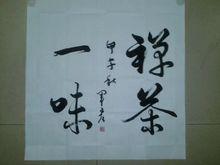 禅茶
一味
甲午秋